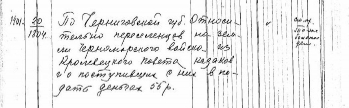 1401. 30/1804 По Черниговской губ. Относи-
тельно переселенцов на зем-
ли Черноморского войска из
Кролевецкого повета казаков
и о поступивших с них в по-
дать деньгах 56 р.